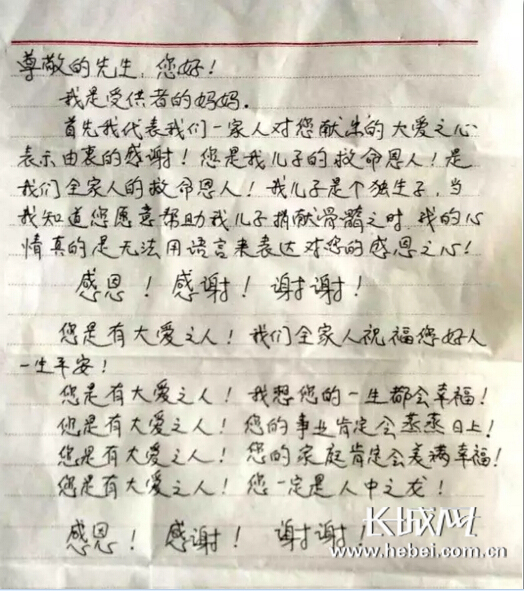 尊敬的先生,您好!
我是受供者的妈妈.
首先我代表我们一家人对您献出的大爱之心
表示由衷的感谢!您是我儿子的救命恩人!是
我们全家人的救命恩人!我儿子是个独生子,当
我知道您愿意帮助我儿子捐献骨髓之时,我的心
情真的是无法用语言来表达对您的感恩之心!
感恩!感谢!谢谢!
您是有大爱之人!我们全家人祝福您好人
一生平安!
您是有大爱之人!我想您的一生都会幸福!
您是有大爱之人!您的事业肯定会蒸蒸日上!
您是有大爱之人!您的家庭肯定会美满幸福!
您是有大爱之人!您一定是人中之龙!
感恩!感谢!谢谢!
长城网
www.hebei.com.cn